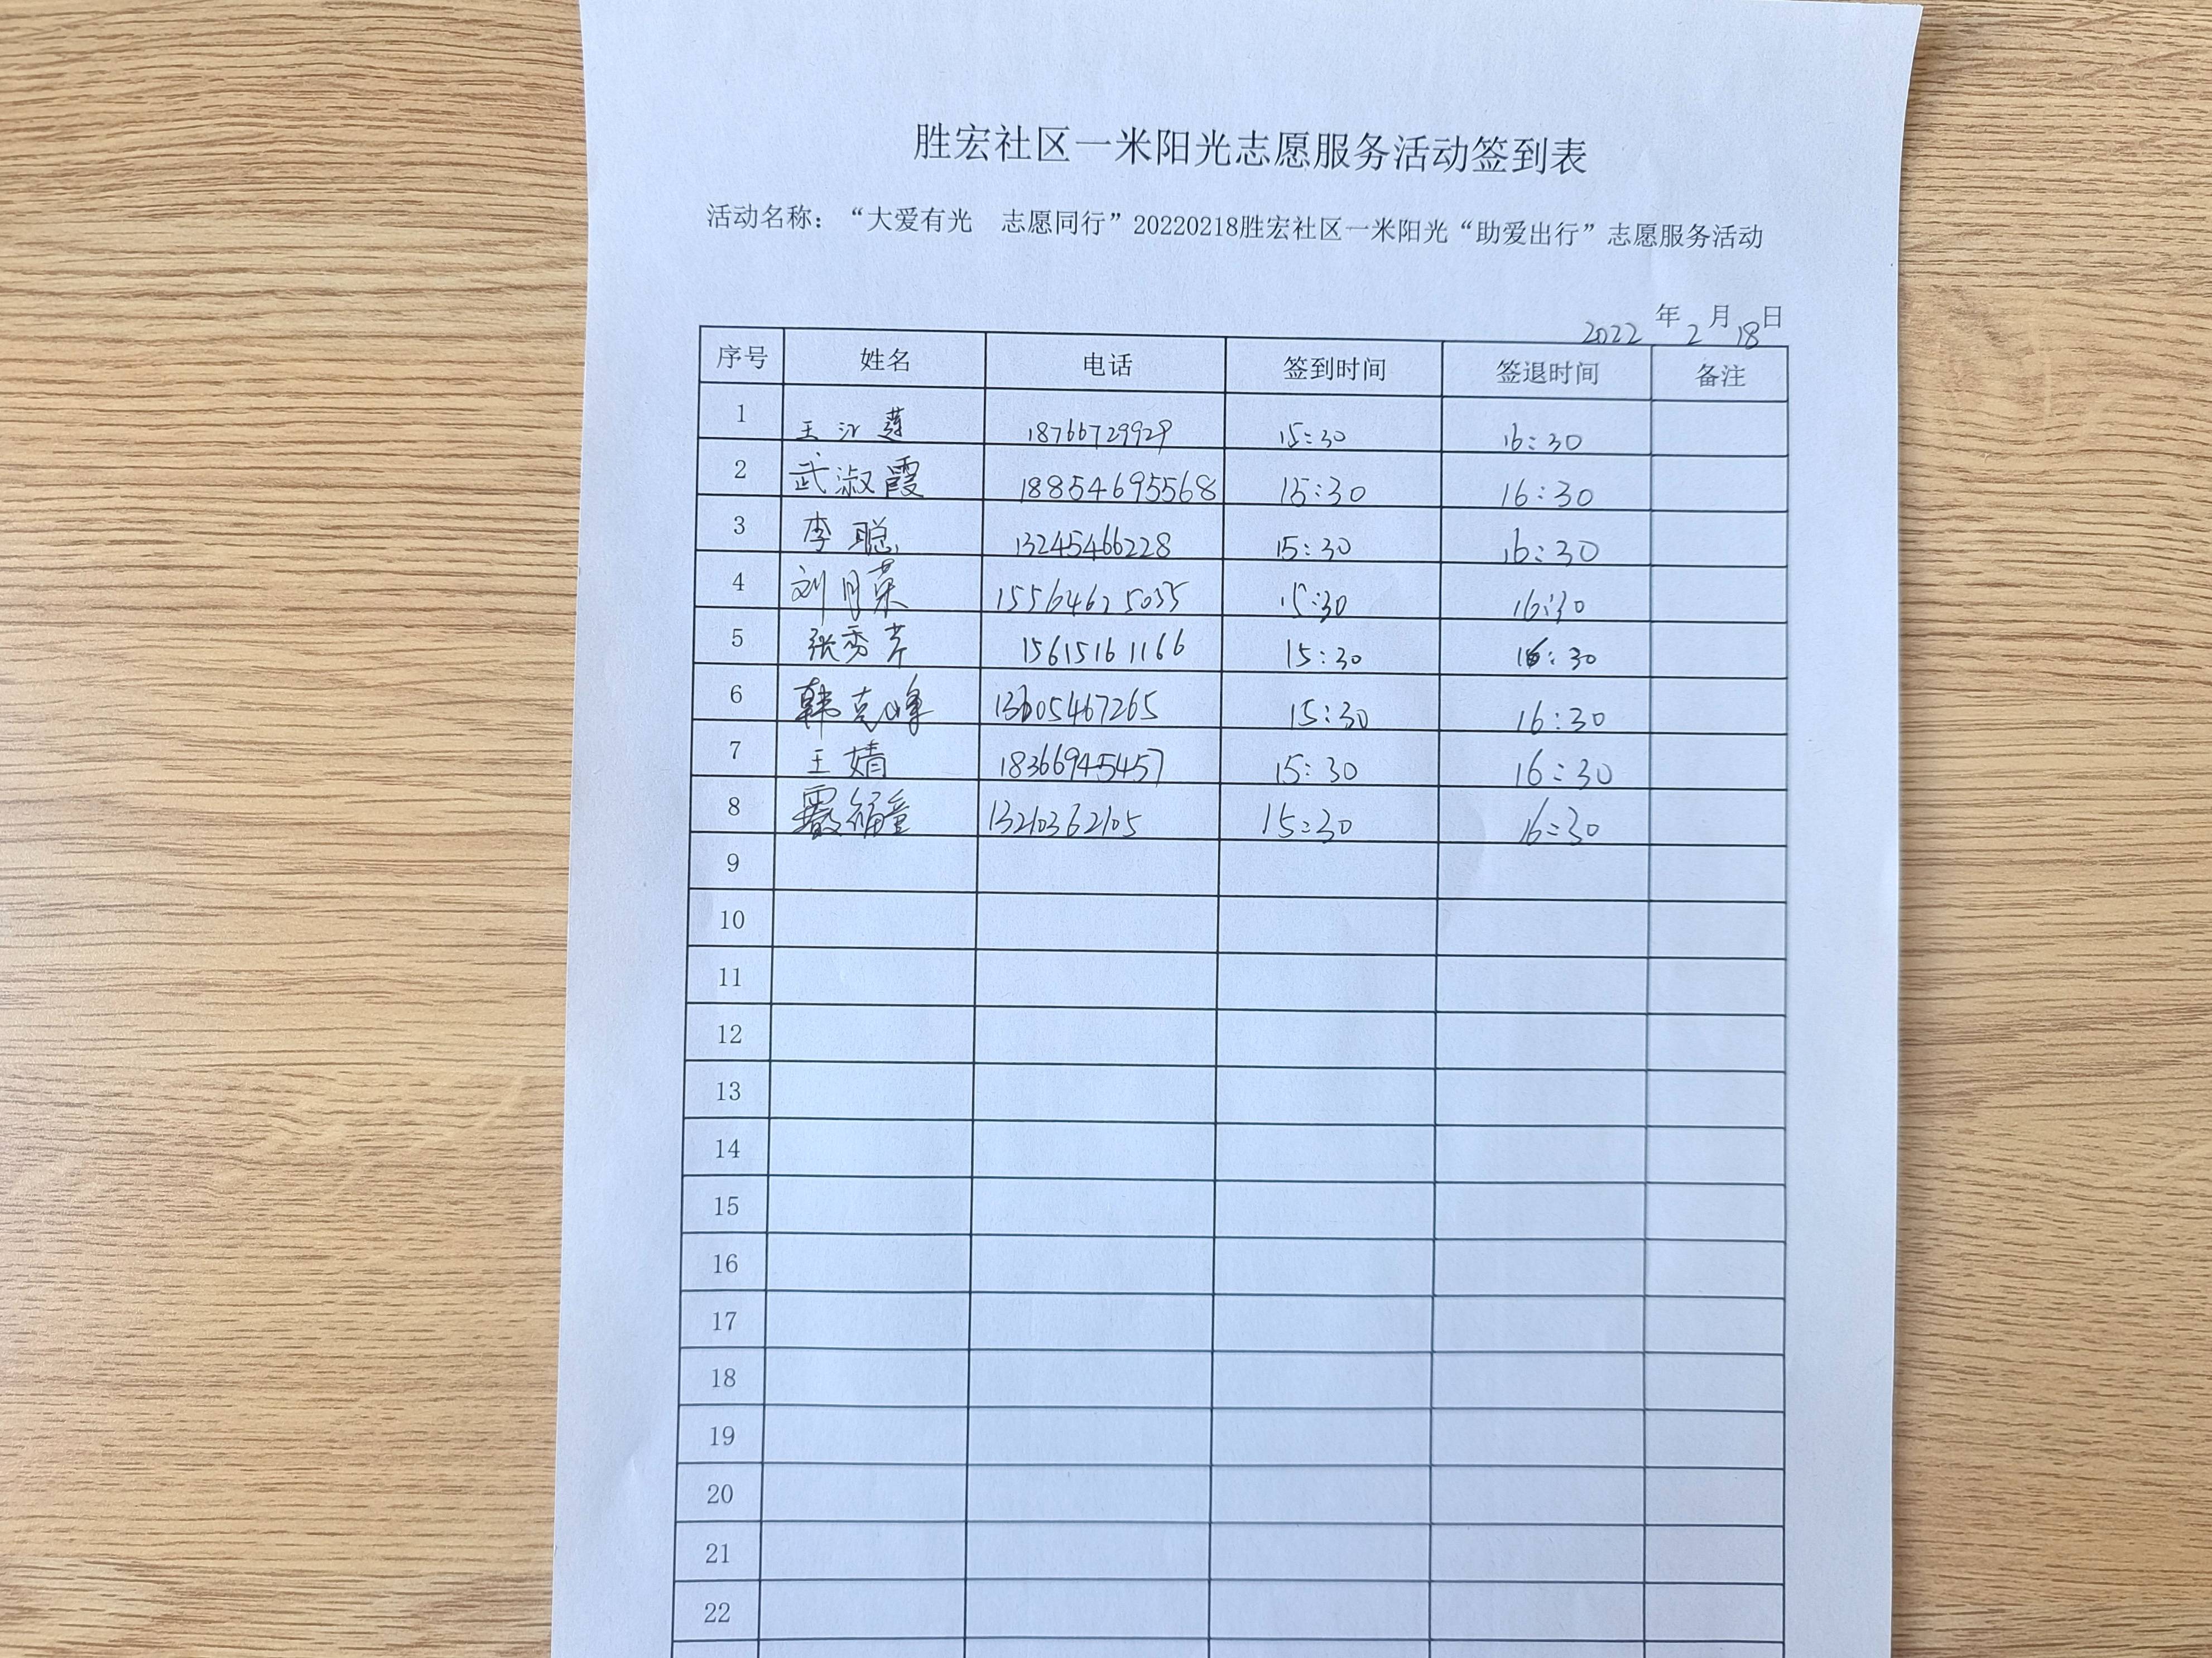 胜宏社区一米阳光志愿服务活动签到表
活动名称：“大爱有光 志愿同行”20220218胜宏社区一米阳光“助爱出行”志愿服务活动
2022年2月18日
序号 姓名 电话 签到时间 签退时间 备注
1 王江莲 18766729929 15:30 16:30
2 武淑霞 18854695568 15:30 16:30
3 李聪 13245466228 15:30 16:30
4 刘月荣 15:30 16:30
5 张秀芹 15615161166 15:30 16:30
6 韩克峰 13605467265 15:30 16:30
7 王婧 18366945457 15:30 16:30
8 13210362105 15:30 16:30
9
10
11
12
13
14
15
16
17
18
19
20
21
22